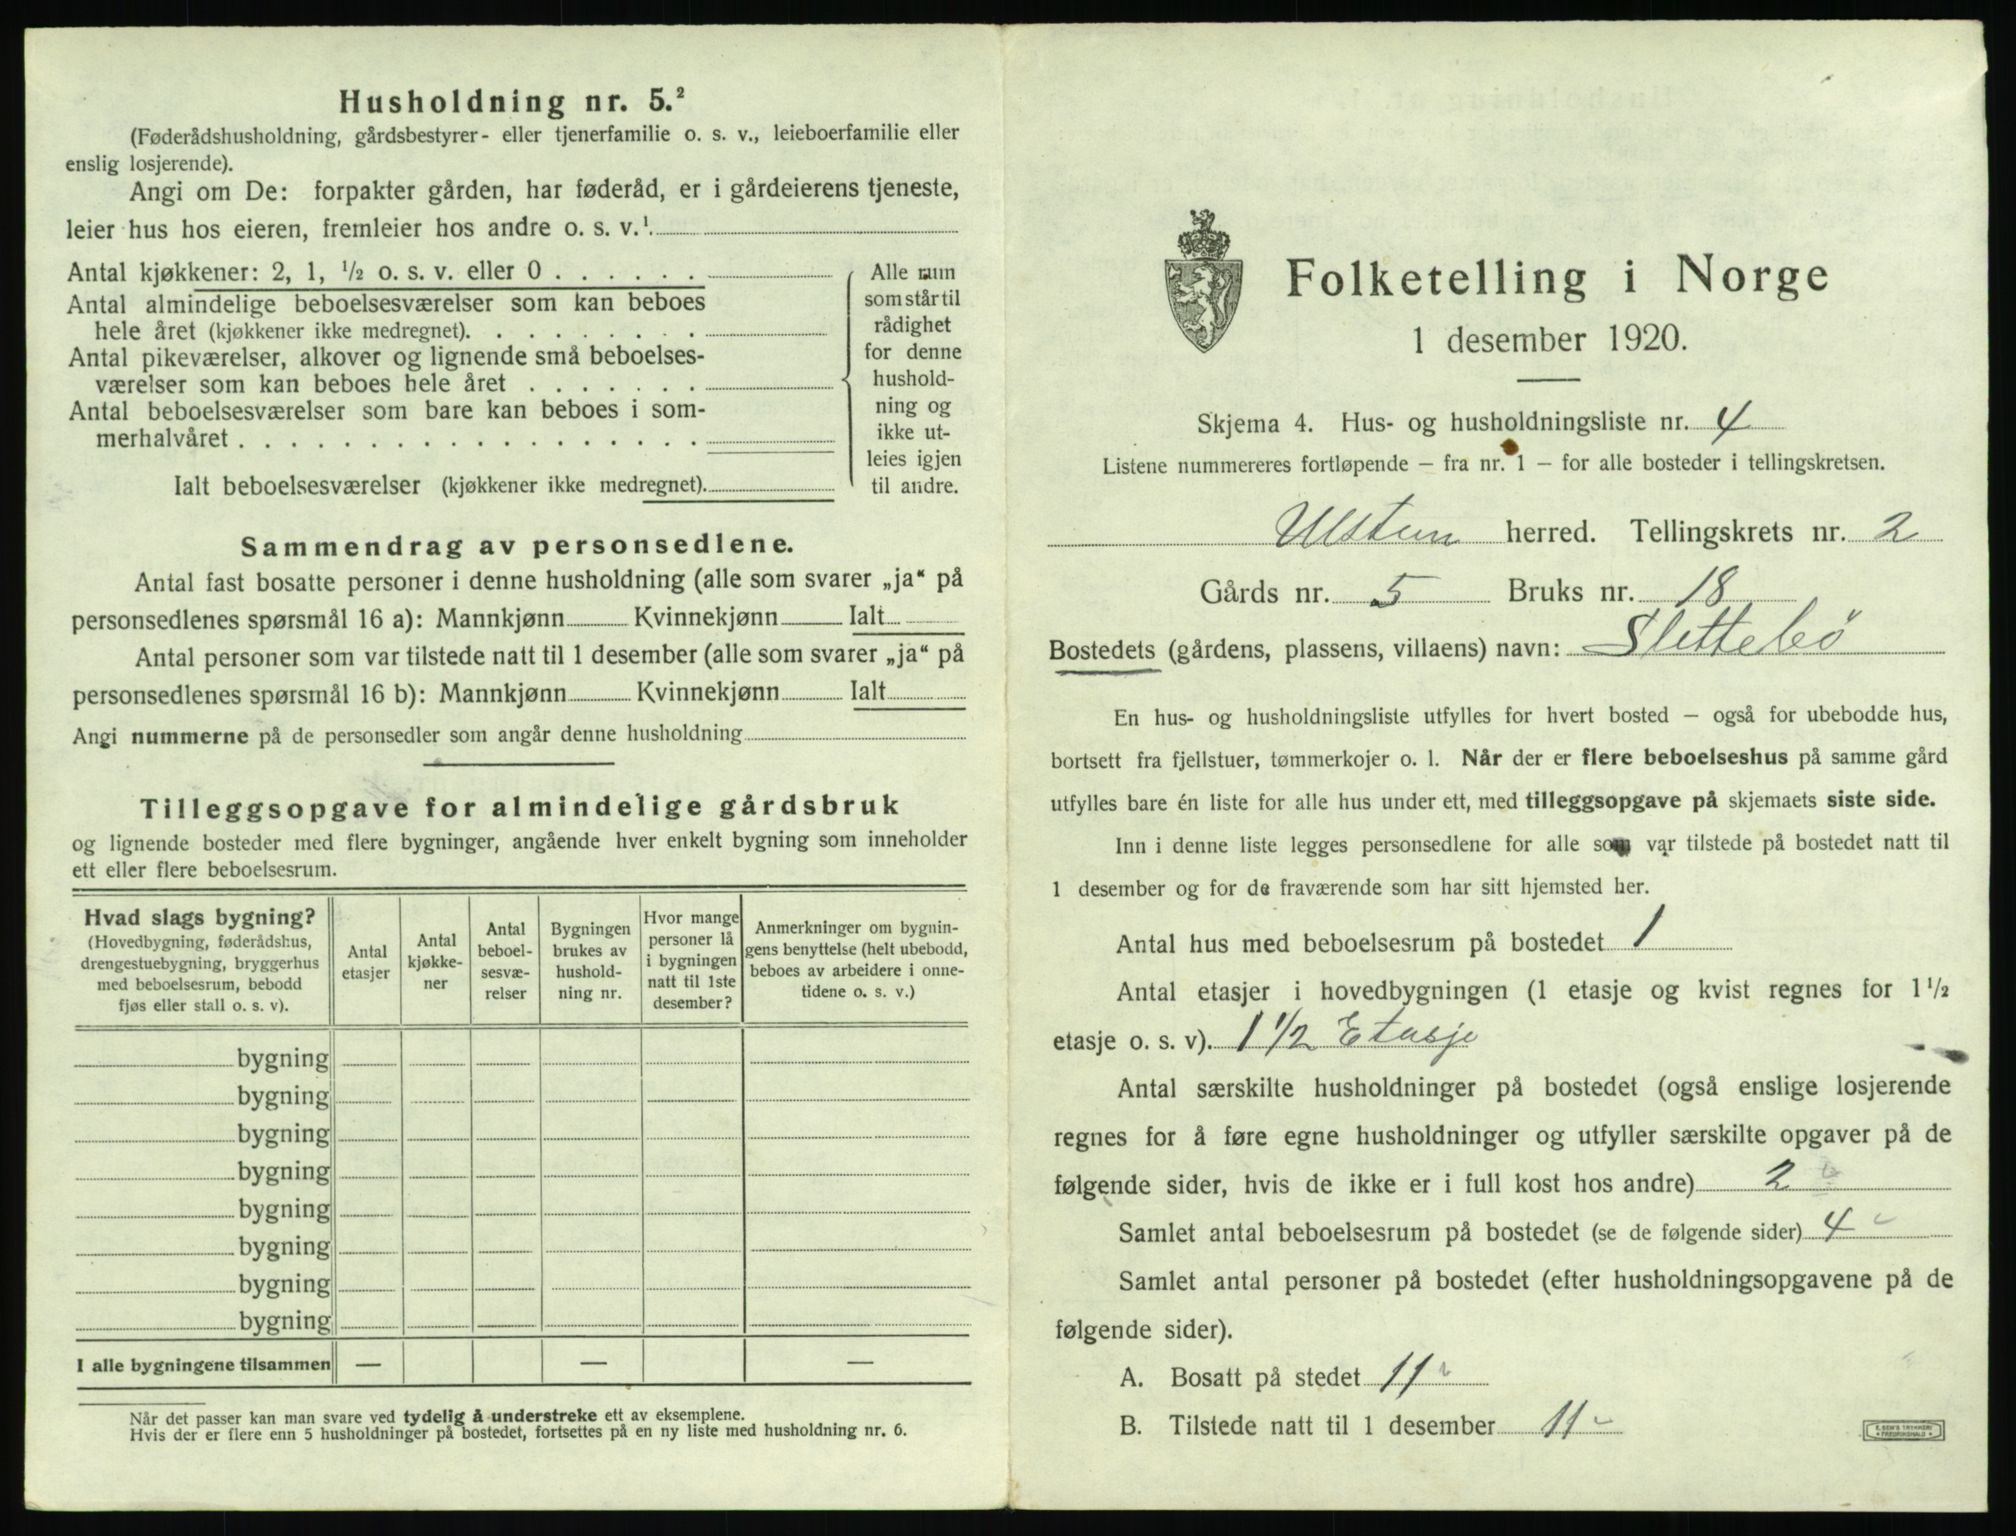 Husholdning nr. 5.²
(Føderådshusholdning, gårdsbestyrer- eller tjenerfamilie o. s. v., leieboerfamilie eller
enslig losjerende).
Angi om De: forpakter gården, har føderåd, er i gårdeierens tjeneste,
leier hus hos eieren, fremleier hos andre o. s. v.¹
Antal kjøkkener: 2, 1, ½ o. s. v. eller 0 . . . . . .
Antal almindelige beboelsesværelser som kan beboes
hele året (kjøkkener ikke medregnet). . . . . . . . .
Antal pikeværelser, alkover og lignende små beboelses-
værelser som kan beboes hele året . . . . . . .
Antal beboelsesværelser som bare kan beboes i som-
merhalvåret . . . . . . . . . . . . . . . . . .
Ialt beboelsesværelser (kjøkkener ikke medregnet).
Alle rum
som står til
rådighet
for denne
hushold-
ning og
ikke ut-
leies igjen
til andre.
Sammendrag av personsedlene.
Antal fast bosatte personer i denne husholdning (alle som svarer „ja“ på
personsedlenes spørsmål 16 a): Mannkjønn Kvinnekjønn Ialt
Antal personer som var tilstede natt til 1 desember (alle som svarer „ja“ på
personsedlenes spørsmål 16 b): Mannkjønn Kvinnekjønn Ialt
Angi nummerne på de personsedler som angår denne husholdning
Tilleggsopgave for almindelige gårdsbruk
og lignende bosteder med flere bygninger, angående hver enkelt bygning som inneholder
ett eller flere beboelsesrum.
Hvad slags bygning?
(Hovedbygning, føderådshus,
drengestuebygning, bryggerhus
med beboelsesrum, bebodd
fjøs eller stall o. s. v).
Antal
etasjer
Antal
kjøkke-
ner
Antal
beboel-
sesvæ-
relser
Bygningen
brukes av
hushold-
ning nr.
Hvor mange
personer lå
i bygningen
natt til 1ste
desember?
Anmerkninger om bygnin-
gens benyttelse (helt ubebodd,
beboes av arbeidere i onne-
tidene o. s. v.)
bygning
bygning
bygning
bygning
bygning
bygning
bygning
bygning
I alle bygningene tilsammen — — —
Når det passer kan man svare ved tydelig å understreke ett av eksemplene.
Hvis der er flere enn 5 husholdninger på bostedet, fortsettes på en ny liste med husholdning nr. 6.
Folketelling i Norge
1 desember 1920.
Skjema 4. Hus- og husholdningsliste nr. 4
Listene nummereres fortløpende – fra nr. 1 – for alle bosteder i tellingskretsen.
Ulstein herred. Tellingskrets nr. 2
Gårds nr. 5 Bruks nr. 18
Bostedets (gårdens, plassens, villaens) navn: Slettebö
En hus- og husholdningsliste utfylles for hvert bosted – også for ubebodde hus,
bortsett fra fjellstuer, tømmerkojer o. l. Når der er flere beboelseshus på samme gård
utfylles bare én liste for alle hus under ett, med tilleggsopgave på skjemaets siste side.
Inn i denne liste legges personsedlene for alle som var tilstede på bostedet natt til
1 desember og for de fraværende som har sitt hjemsted her.
Antal hus med beboelsesrum på bostedet 1
Antal etasjer i hovedbygningen (1 etasje og kvist regnes for 1½
etasje o. s. v). 1 1/2 Etasje
Antal særskilte husholdninger på bostedet (også enslige losjerende
regnes for å føre egne husholdninger og utfyller særskilte opgaver på de
følgende sider, hvis de ikke er i full kost hos andre) 2
Samlet antal beboelsesrum på bostedet (se de følgende sider) 4
Samlet antal personer på bostedet (efter husholdningsopgavene på de
følgende sider).
A. Bosatt på stedet 11
B. Tilstede natt til 1 desember 11